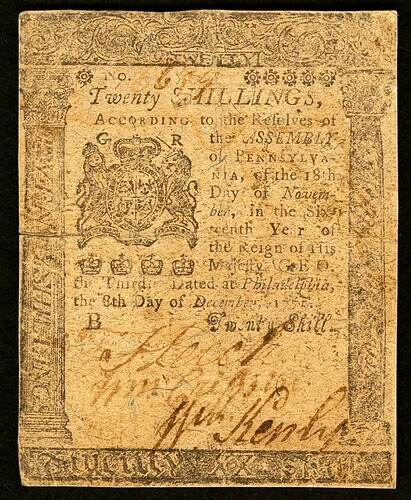 TWENTY
No.
Twenty SHILLINGS,
ACCORDING to the Resolves of
G R the ASSEMBLY
of PENNSYLVA-
NIA, of the 18th
Day of Novem-
ber, in the Six-
teenth Year of
the Reign of His
Majesty GEO.
the Third. Dated at Philadelphia,
the 8th Day of December, 1775.
B Twenty Shill.
Wm. Kenly
Twenty XX. Shill